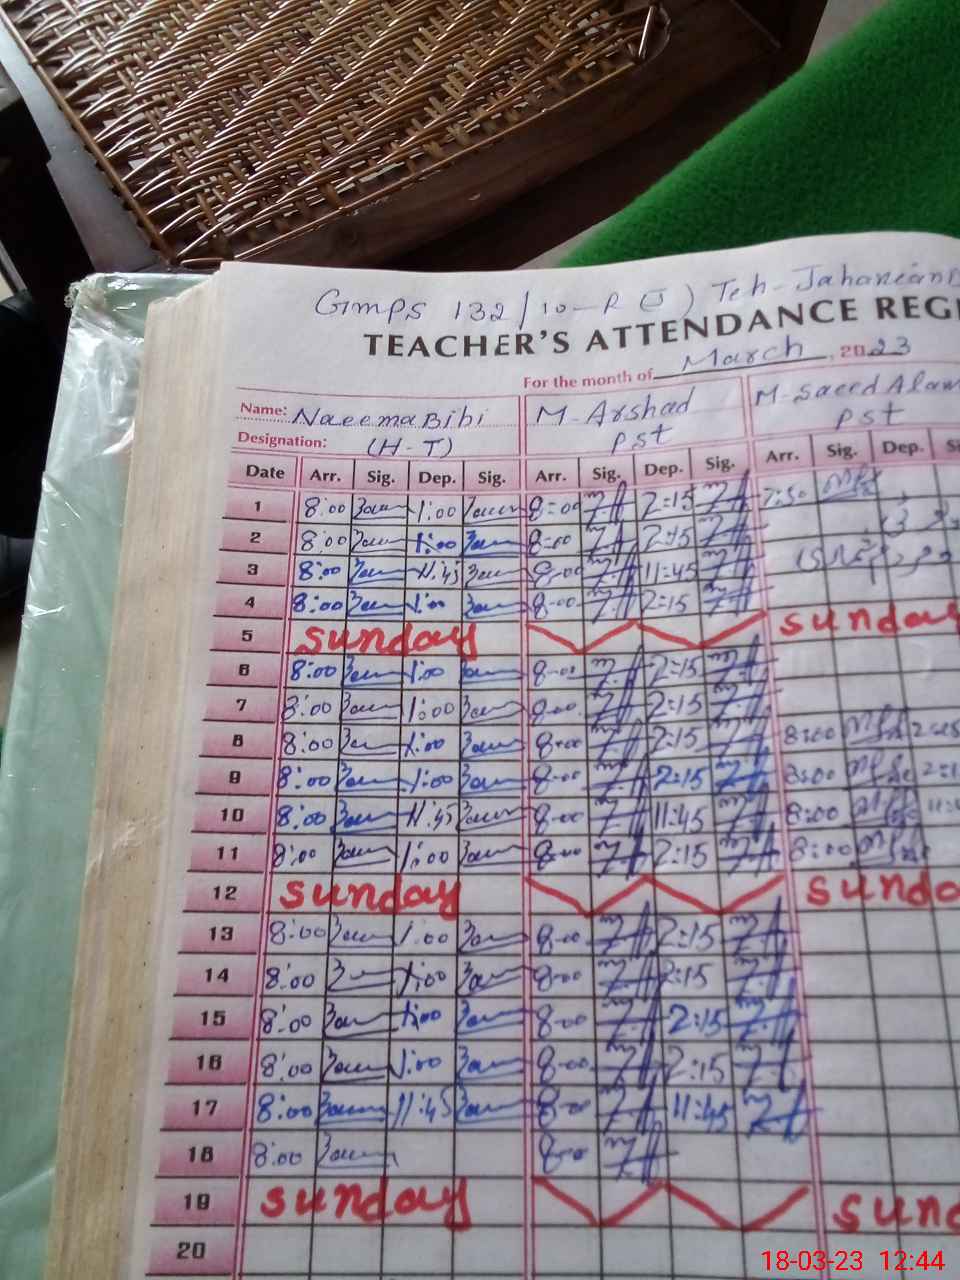 Gmps 132/10-R (J) Teh-Jahanian
TEACHER'S ATTENDANCE REGI
For the month of March, 2023
Name: Naeema Bibi M-Arshad M-Saeed Alam
Designation: (H-T) PST PST
Date Arr. Sig. Dep. Sig. Arr. Sig. Dep. Sig. Arr. Sig. Dep. Si
1 8:00 1:00 8-00 2:15 7:50
2 8:00 1:00 8-00 2:15
3 8:00 11:45 8-00 11:45
4 8:00 1:00 8-00 2:15
5 Sunday Sunday
6 8:00 1:00 8-00 2:15
7 8:00 1:00 8-00 2:15
8 8:00 1:00 8-00 2:15 8:00
9 8:00 1:00 8-00 2:15 8:00
10 8:00 11:45 8-00 11:45 8:00
11 8:00 1:00 8-00 2:15 8:00
12 Sunday Sunda
13 8:00 1:00 8-00 2:15
14 8:00 1:00 8-00 2:15
15 8:00 1:00 8-00 2:15
16 8:00 1:00 8-00 2:15
17 8:00 11:45 8-00 11:45
18 8:00 8-00
19 Sunday Sun
20
18-03-23 12:44